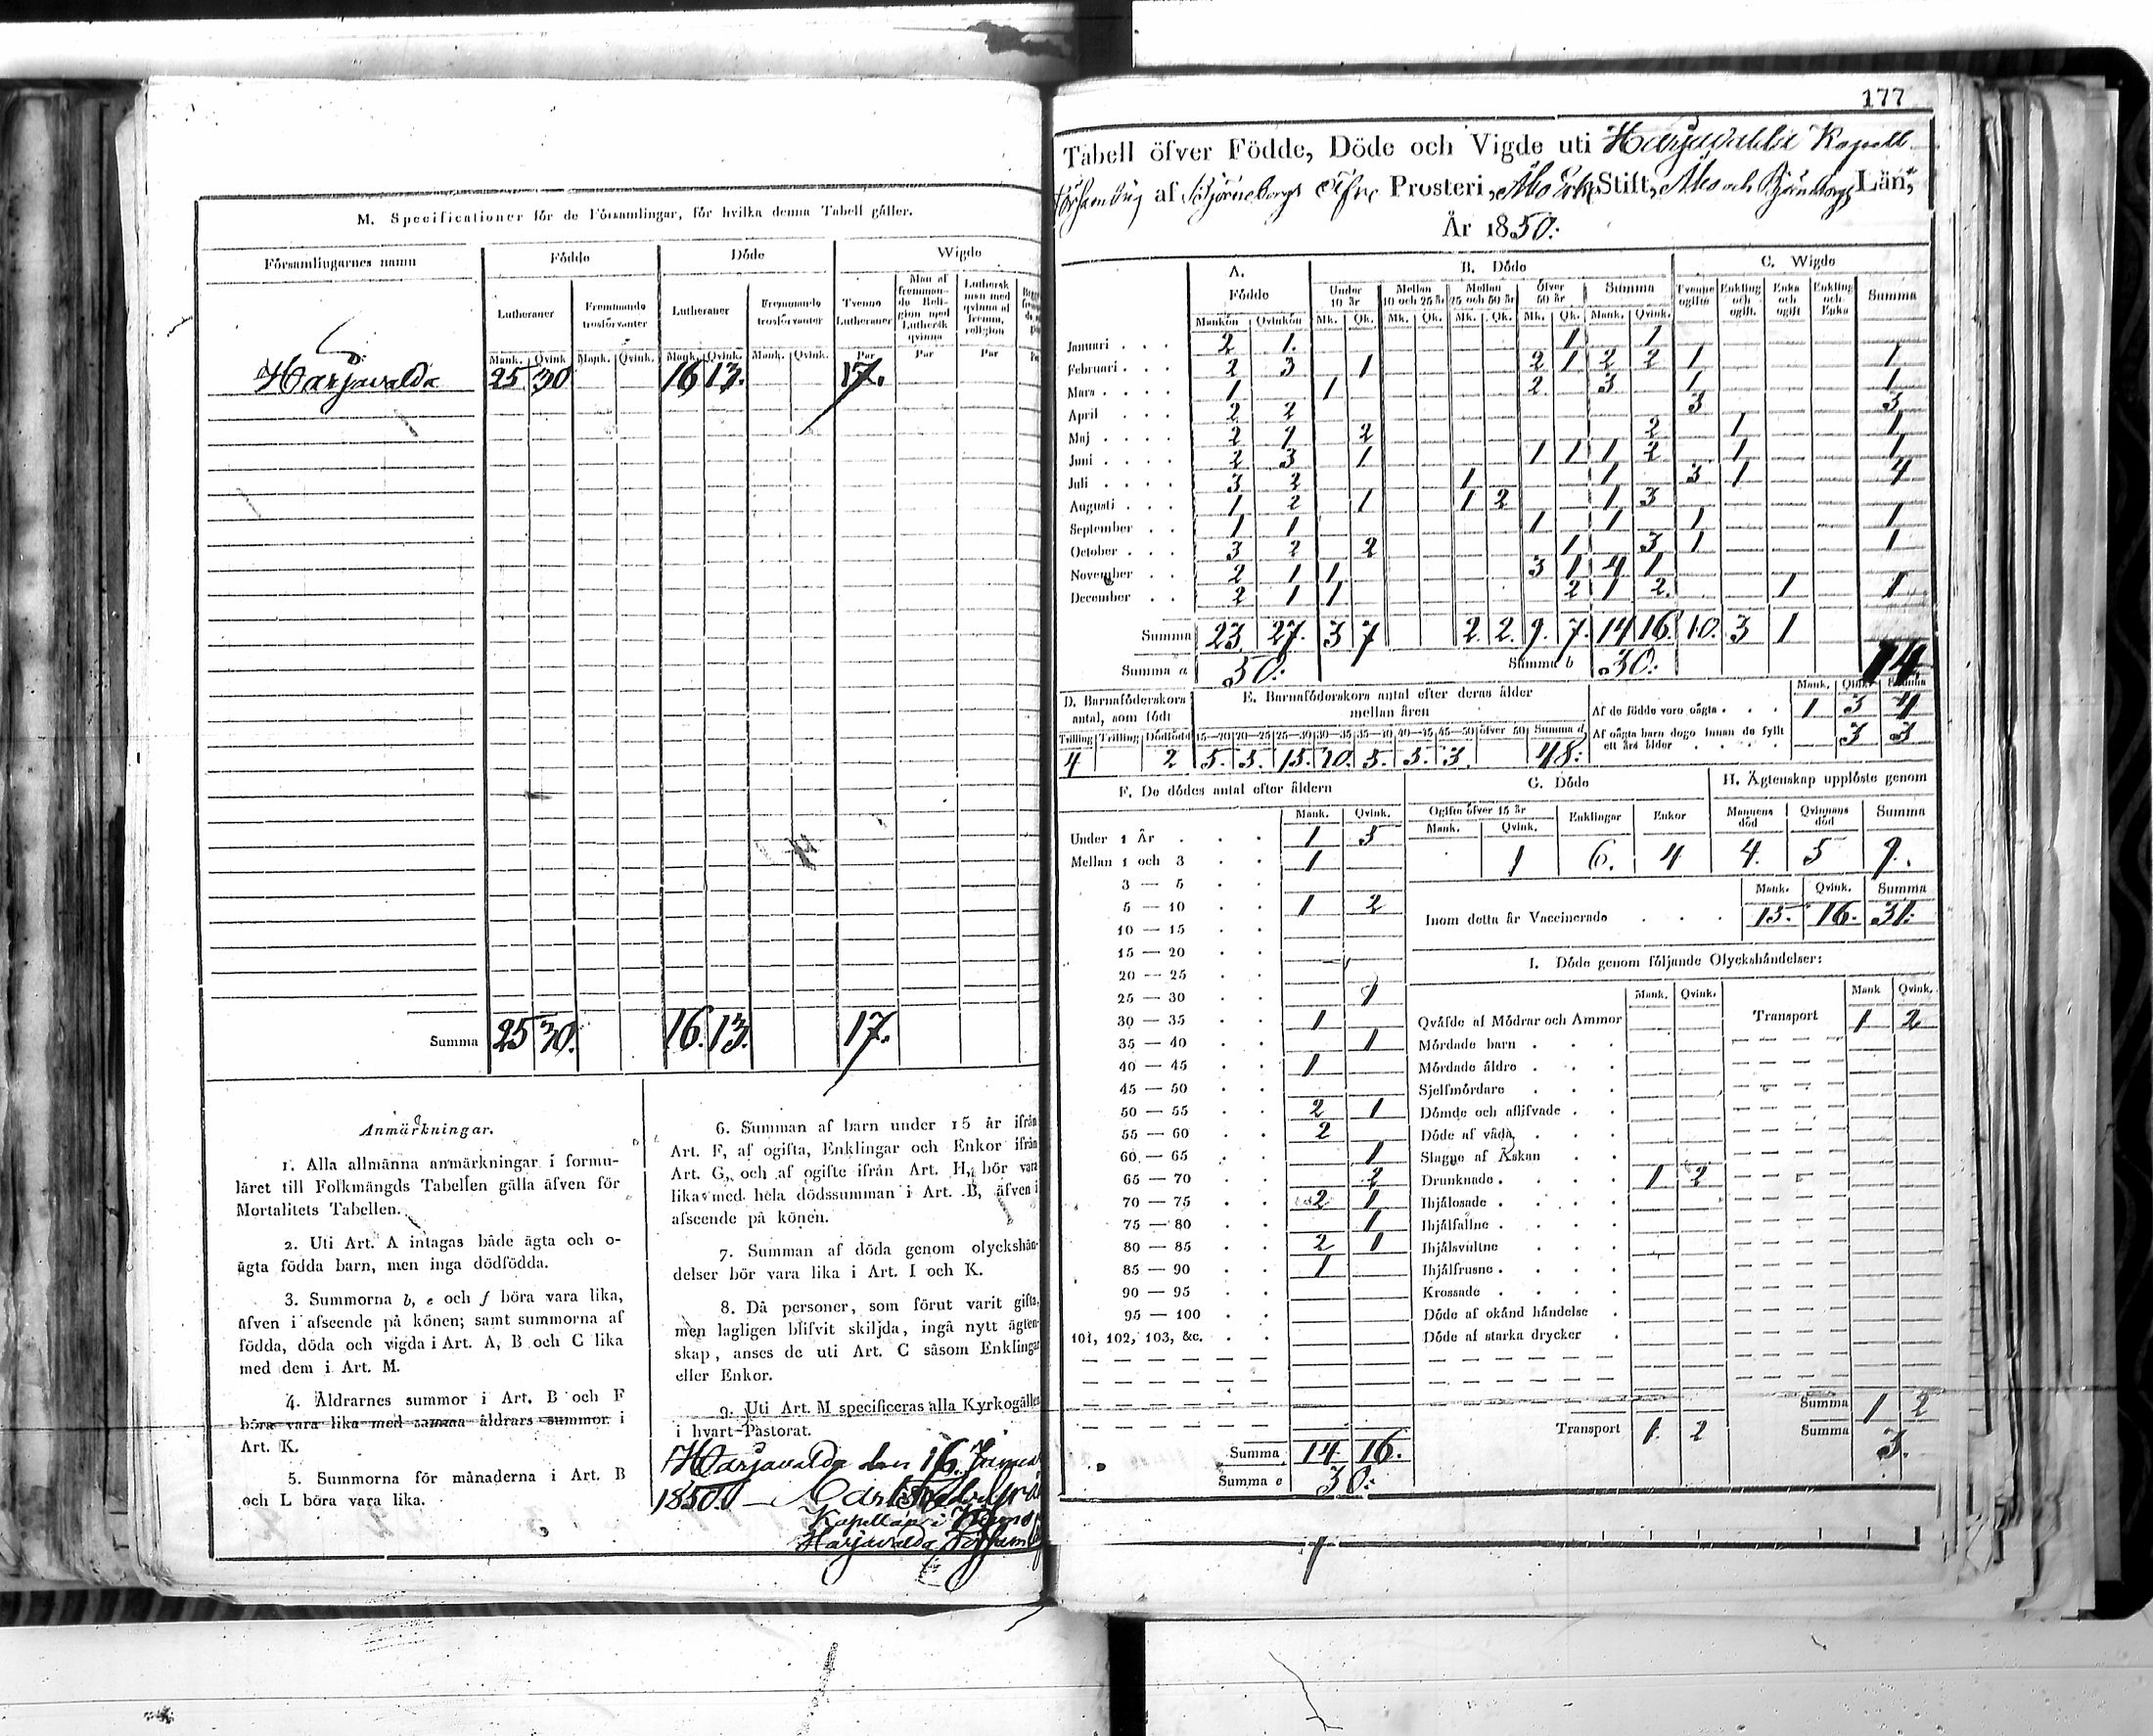 M. Specificationer för de Församlingar, för hvilka denna Tabell gäller.
Församlingarnes namn Födde Döde Wigde
Lutheraner Fremmande trosförvanter Lutheraner Fremmande trosförvanter Tvenne Lutheraner Man af fremmande Religion med Luthersk qvinna Luthersk man med qvinna af fremm. religion
Mank. Qvink Mank. Qvink. Mank. Qvink. Mank. Qvink. Par Par Par
Harjavalda 25 30 16 13. 17.
Summa 25 30. 16. 13. 17.
Anmärkningar.
1. Alla allmänna anmärkningar i formu-
läret till Folkmängds Tabellen gälla äfven för
Mortalitets Tabellen.
2. Uti Art. A intagas både ägta och o-
ägta födda barn, men inga dödfödda.
3. Summorna b, e och f böra vara lika,
äfven i afseende på könen; samt summorna af
födda, döda och vigda i Art. A, B och C lika
med dem i Art. M.
4. Åldrarnes summor i Art. B och F
böra vara lika med samma åldrars summor i
Art. K.
5. Summorna för månaderna i Art. B
och L böra vara lika.
6. Summan af barn under 15 år ifrån
Art. F, af ogifta, Enklingar och Enkor ifrån
Art. G, och af ogifte ifrån Art. H, bör vara
lika med hela dödssumman i Art. B, äfven i
afseende på könen.
7. Summan af döda genom olyckshän-
delser bör vara lika i Art. I och K.
8. Då personer, som förut varit gifta,
men lagligen blifvit skiljda, ingå nytt ägten-
skap, anses de uti Art. C såsom Enklingar
eller Enkor.
9. Uti Art. M specificeras alla Kyrkogällen
i hvart Pastorat.
Harjavalda den 16.
1850.
Kapellan i
Harjavalda
177
Tabell öfver Födde, Döde och Vigde uti Harjavalda Kapell
Församling af Björneborgs Öfre Prosteri, Åbo Erke Stift, Åbo och Björneborgs Län,
År 1850.
A. Födde B. Döde C. Wigde
Under 10 år Mellan 10 och 25 år Mellan 25 och 50 år Öfver 50 år Summa Tvenne ogifte Enkling och ogift. Enka och ogift Enkling och Enka Summa
Mankön Qvinkön Mk. Qk. Mk. Qk. Mk. Qk. Mk. Qk. Mank. Qvink.
Januari 2 1. 1 1
Februari 2 3 1 2 1 2 2 1 1
Mars 1 1 2. 3. 1 1
April 2 2 3 3
Maj 2 7 2 2 1 1
Juni 2 3 1 1 1 1 2 1 1
Juli 3 2 1 1 3 1 4
Augusti 1 2 1 1 2 1 3
September 1 1 1 1 1 1
October 3 2 2 1 3 1 1
November 2 1 1 3 1 4 1
December 2 1 1 2 1 2. 1 1
Summa 23. 27. 3 7 2. 2. 9. 7. 14 16. 10. 3 1
Summa a 50. Summa b 30. 14
D. Barnaföderskors antal, som födt E. Barnaföderskors antal efter deras ålder mellan åren
Mank. Qvink. Summa
Af de födde voro oägta 1 3 4
Af oägta barn dogo innan de fyllt ett års ålder 3 3
Tvilling Trilling Dödfödd 15—20 20—25 25—30 30—35 35—40 40—45 45—50 öfver 50 Summa d
4 2 5. 5. 15. 10. 5. 5. 3. 48.
F. De dödes antal efter åldern
Mank. Qvink.
Under 1 År 1 5
Mellan 1 och 3 1
3 — 5
5 — 10 1 2
10 — 15
15 — 20
20 — 25
25 — 30 1
30 — 35 1
35 — 40 1
40 — 45 1
45 — 50
50 — 55 2 1
55 — 60 2
60 — 65 1
65 — 70 2
70 — 75 2 1
75 — 80 1
80 — 85 2 1
85 — 90 1
90 — 95
95 — 100
101, 102, 103, &c.
Summa 14 16.
Summa e 30.
G. Döde H. Ägtenskap upplöste genom
Ogifta öfver 15 år Enklingar Enkor Mannens död Qvinnans död Summa
Mank. Qvink.
1 6. 4 4. 5 9.
Mank. Qvink. Summa
Inom detta år Vaccinerade 15. 16. 31.
I. Döde genom följande Olyckshändelser:
Mank. Qvink. Mank Qvink.
Qväfde af Mödrar och Ammor Transport 1 2
Mördade barn
Mördade äldre
Sjelfmördare
Dömde och aflifvade
Döde af våda
Slagne af Åskan
Drunknade 1 2
Ihjälosade
Ihjälfallne
Ihjälsvultne
Ihjälfrusne
Krossade
Döde af okänd händelse
Döde af starka drycker
Summa 1 2
Transport 1. 2 Summa 3.